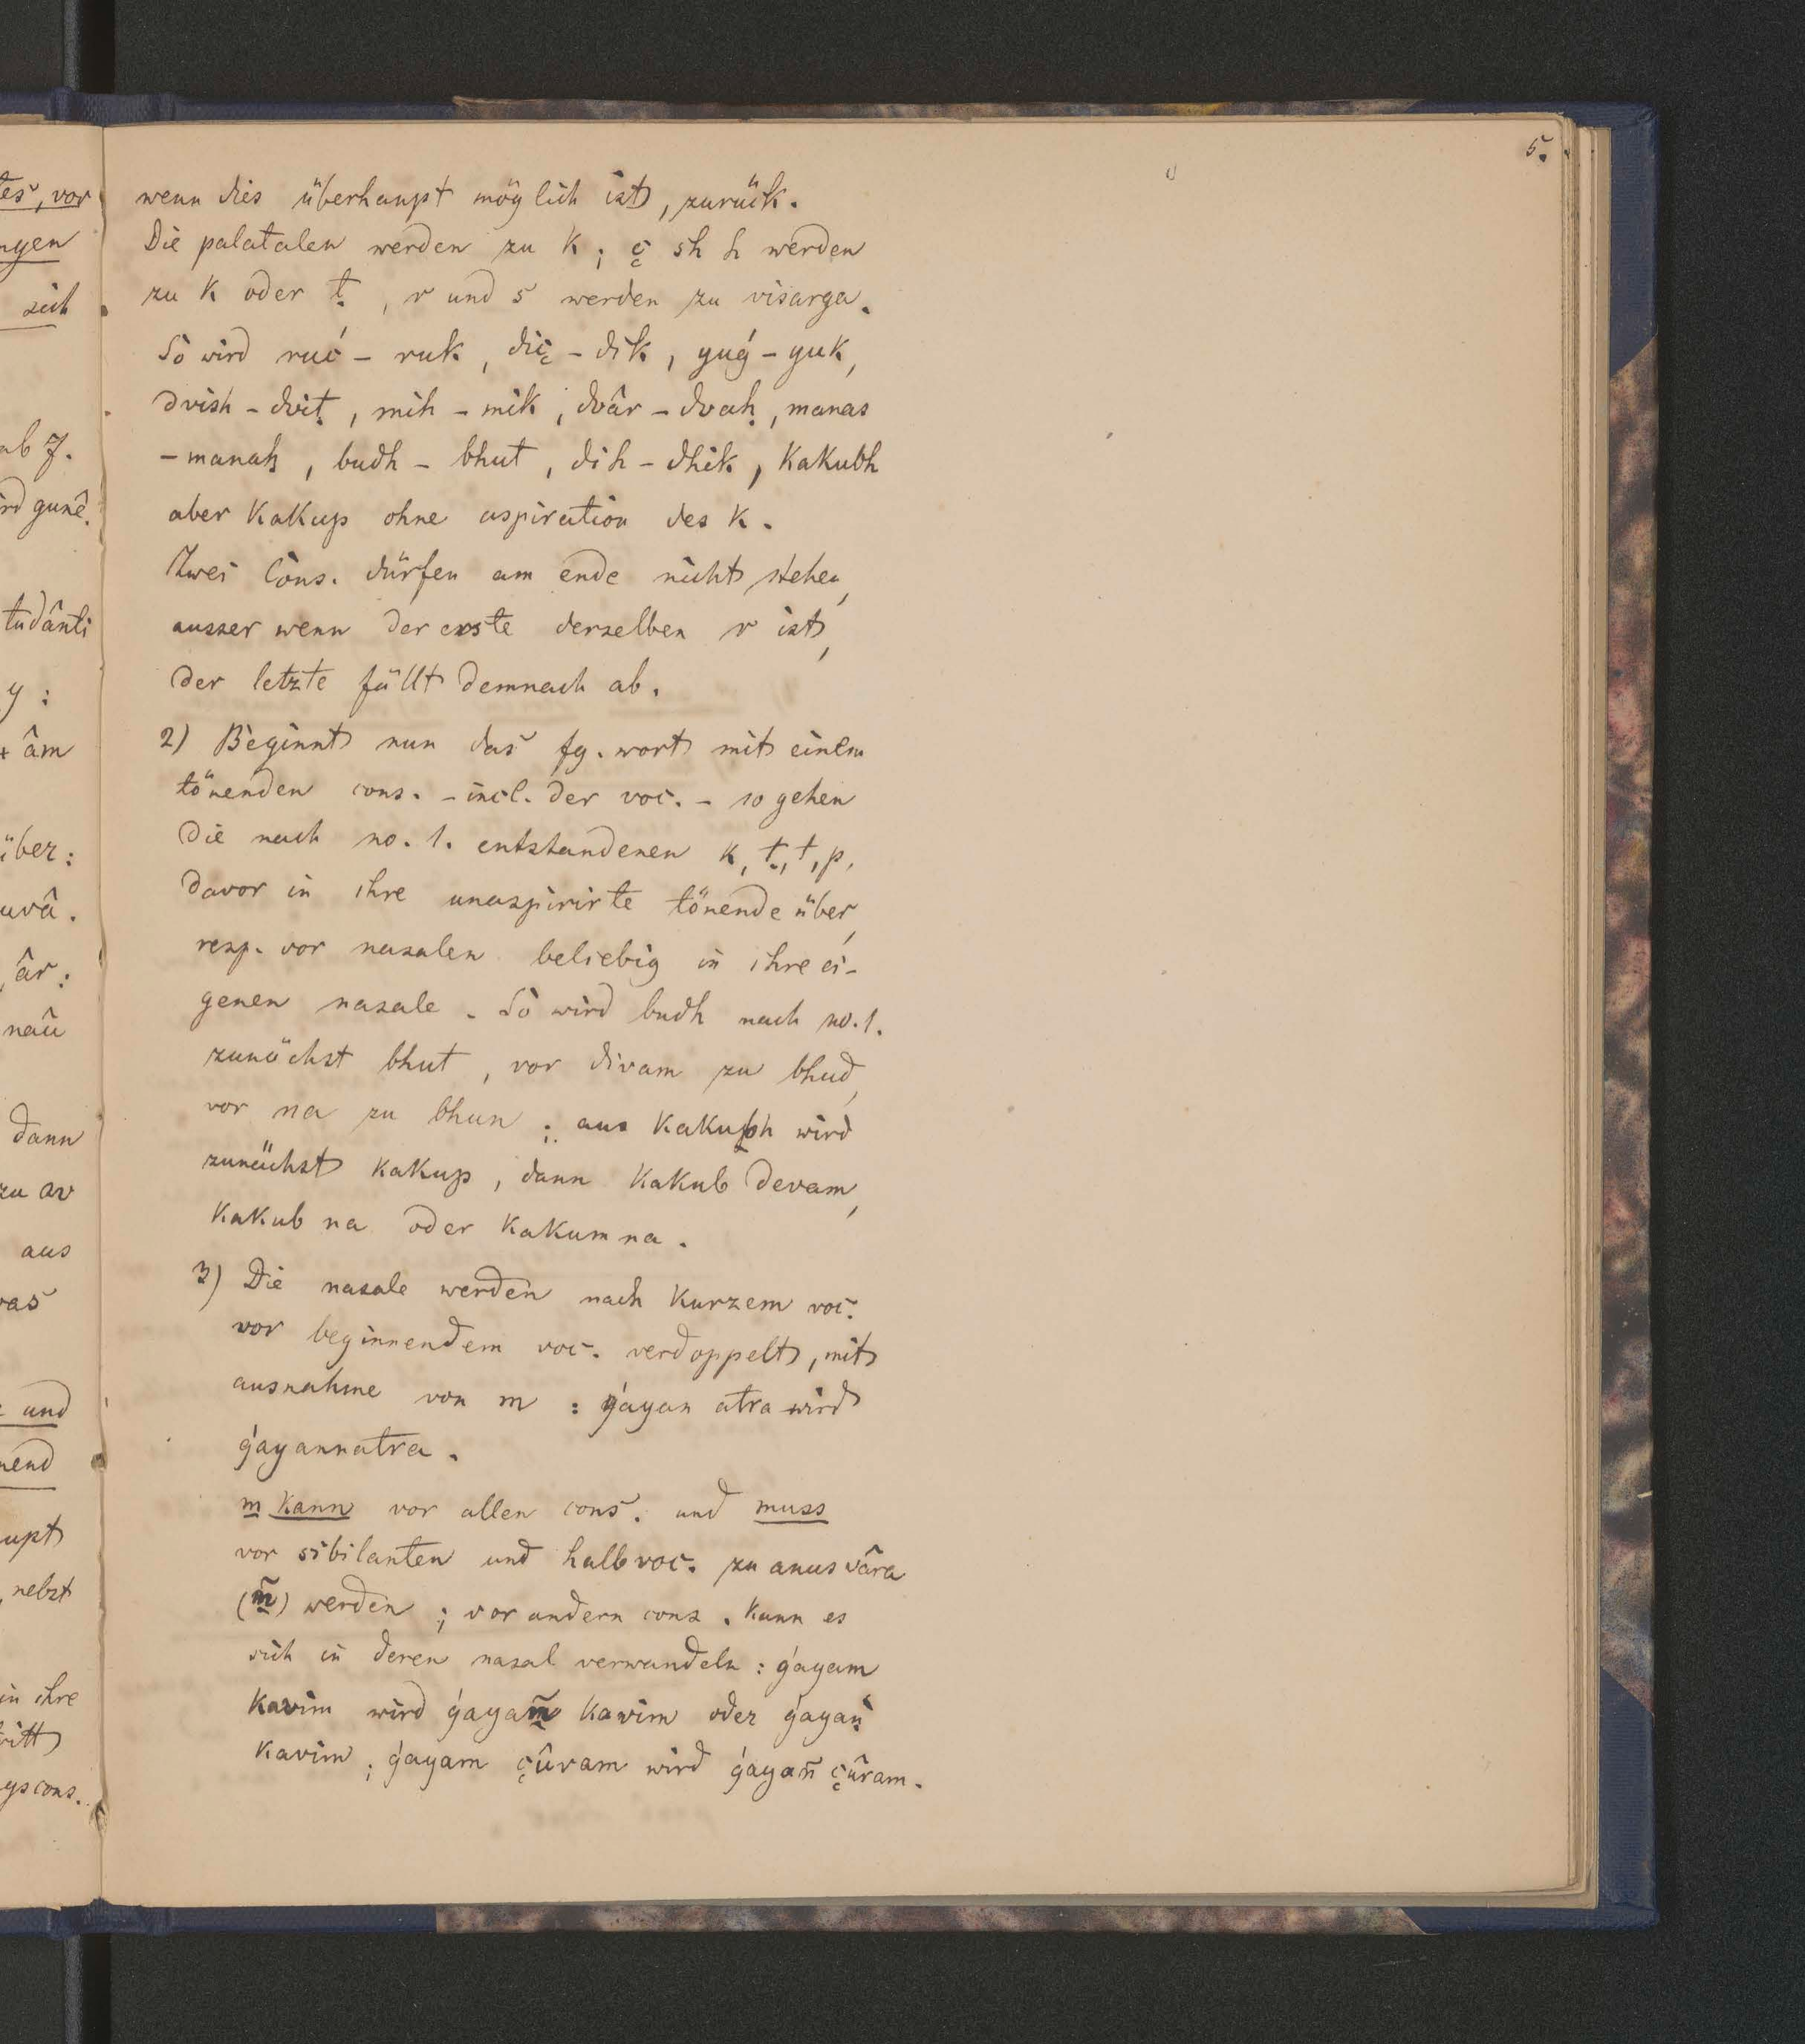 5.
wenn dies überhaupt möglich ist, zurück.
Die palatalen werden zu k; ç sh h werden
zu k oder ṭ, r und s werden zu visarga.
So wird ruć - ruk, diç - dik, yuǵ - yuk,
dvish - dviṭ, mih - mik, dvâr - dvaḥ, manas
- manaḥ, budh - bhut, dih - dhik, kakubh
aber kakup ohne aspiration des k.
Zwei Cons. dürfen am ende nicht stehen,
ausser wenn der erste derselben r ist,
der letzte fällt demnach ab.
2) Beginnt nun das fg. wort mit einem
tönenden cons. - incl. der voc. - so gehen
die nach no. 1. entstandenen k, ṭ, t, p,
davor in ihre unaspirirte tönende über,
resp. vor nasalen beliebig in ihre ei-
genen nasale. So wird budh nach no. 1.
zunächst bhut, vor divam zu bhud,
vor na zu bhun; aus kakubh wird
zunächst kakup, dann kakub devam,
kakub na oder kakum na.
3) Die nasale werden nach kurzem voc.
vor beginnendem voc. verdoppelt, mit
ausnahme von m : ǵayan atra wird
ǵayannatra.
m kann vor allen cons. und muss
vor sibilanten und halbvoc. zu anusvâra
(m̃) werden; vor andern cons. kann es
sich in deren nasal verwandeln : ǵayam
kavim wird ǵayam̃ kavim oder ǵayaṅ
kavim; ǵayam çûram wird ǵayañ çûram.
tes, vor
ngen
sich
ab 7.
ird gunê.
tudânti
y :
+ âm
über :
uvâ.
âr :
nau
dann
zu av
aus
vas
und
nend
upt
, nebst
in ihre
ritt
gscons.